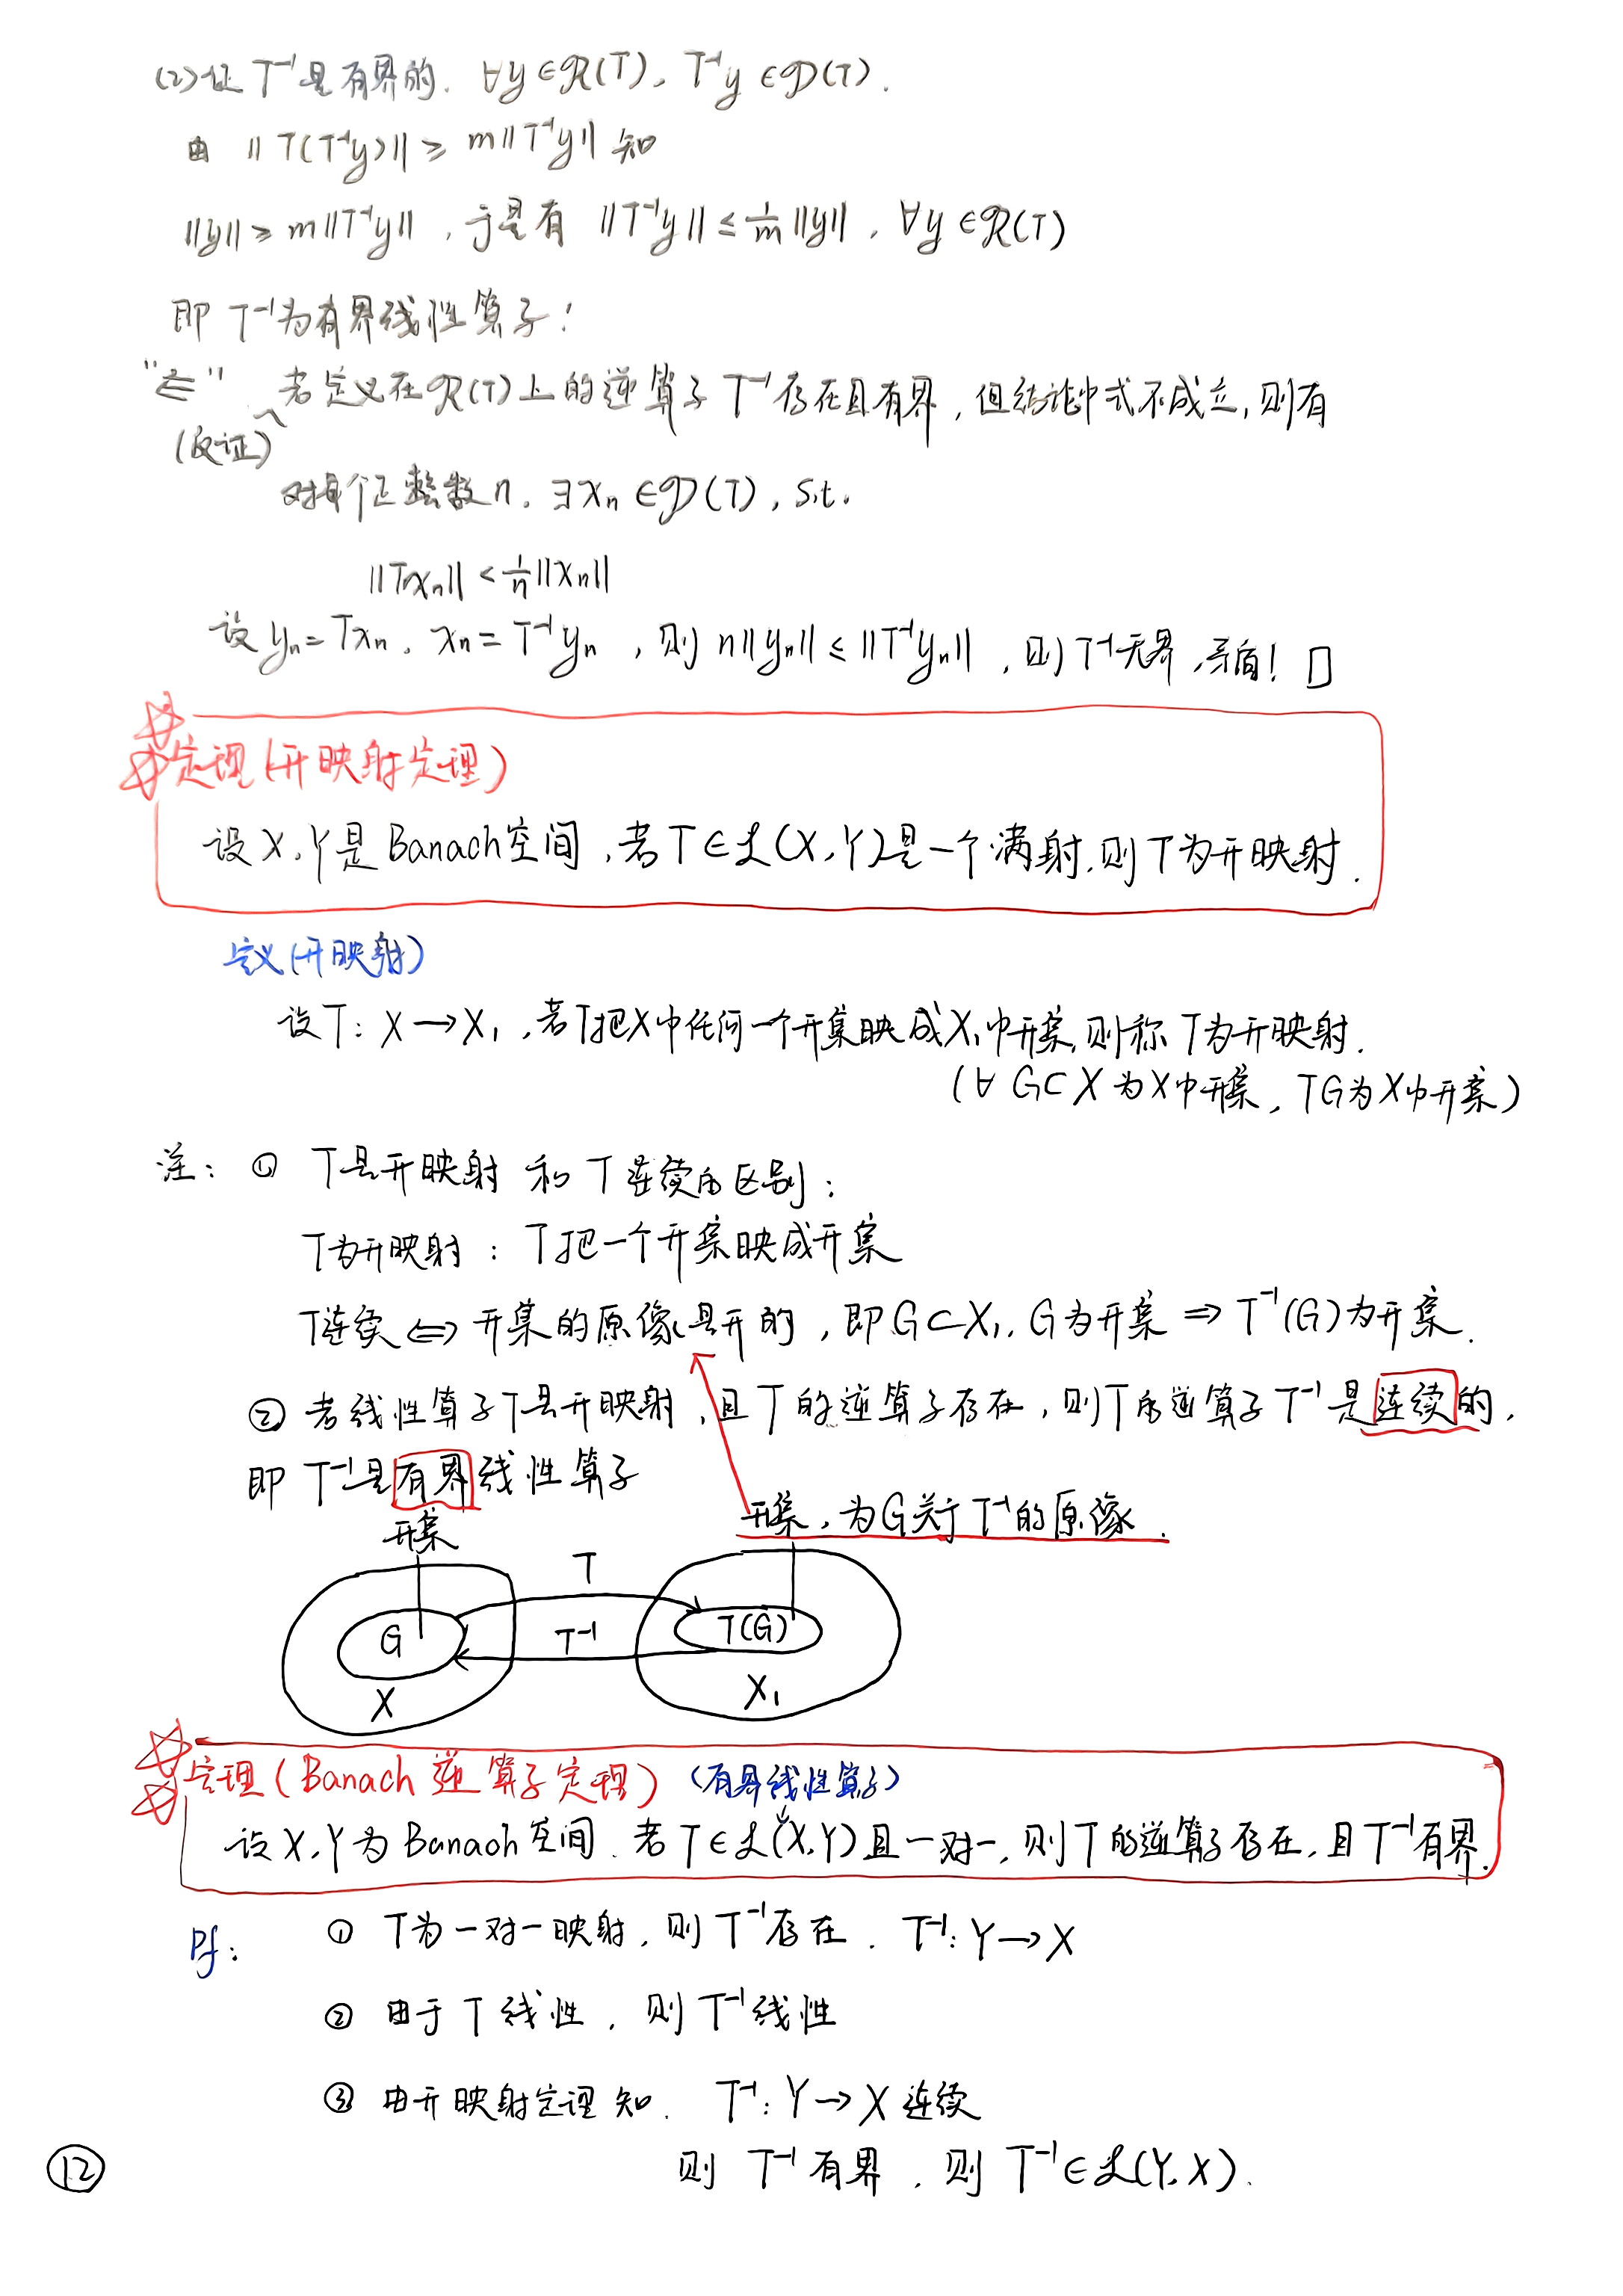 (2) 证 T⁻¹是有界的. ∀y∈𝓡(T), T⁻¹y∈𝓓(T).
由 ‖T(T⁻¹y)‖ ≥ m‖T⁻¹y‖ 知
‖y‖ ≥ m‖T⁻¹y‖, 于是有 ‖T⁻¹y‖ ≤ 1/m ‖y‖, ∀y∈𝓡(T)
即 T⁻¹为有界线性算子!
"⇐" 若定义在𝓡(T)上的逆算子 T⁻¹存在且有界, 但结论中式不成立, 则有
(反证)
对每个正整数n, ∃xₙ∈𝓓(T), s.t.
‖Txₙ‖ < 1/n ‖xₙ‖
设 yₙ=Txₙ, xₙ=T⁻¹yₙ, 则 n‖yₙ‖ ≤ ‖T⁻¹yₙ‖, 则 T⁻¹无界, 矛盾! □
定理(开映射定理)
设 X, Y是Banach空间, 若 T∈𝓛(X,Y)是一个满射, 则 T为开映射.
定义(开映射)
设T: X→X₁, 若T把X中任何一个开集映成X₁中开集, 则称 T为开映射.
(∀ G⊂X 为X中开集, TG为X中开集)
注: ① T是开映射 和 T连续的区别:
T为开映射: T把一个开集映成开集
T连续 ⇔ 开集的原像是开的, 即G⊂X₁, G为开集 ⇒ T⁻¹(G)为开集.
② 若线性算子T是开映射, 且 T的逆算子存在, 则T的逆算子 T⁻¹是连续的,
即 T⁻¹是有界线性算子
开集 开集, 为G关于T⁻¹的原像.
T
G T⁻¹ T(G)
X X₁
定理(Banach 逆算子定理) (有界线性算子)
设 X, Y为 Banach空间. 若 T∈𝓛(X,Y)且一对一, 则T的逆算子存在, 且T⁻¹有界.
Pf: ① T为一对一映射, 则 T⁻¹存在. T⁻¹: Y→X
② 由于 T 线性, 则 T⁻¹线性
③ 由开映射定理知. T⁻¹: Y→X 连续
则 T⁻¹有界, 则 T⁻¹∈𝓛(Y,X).
⑫